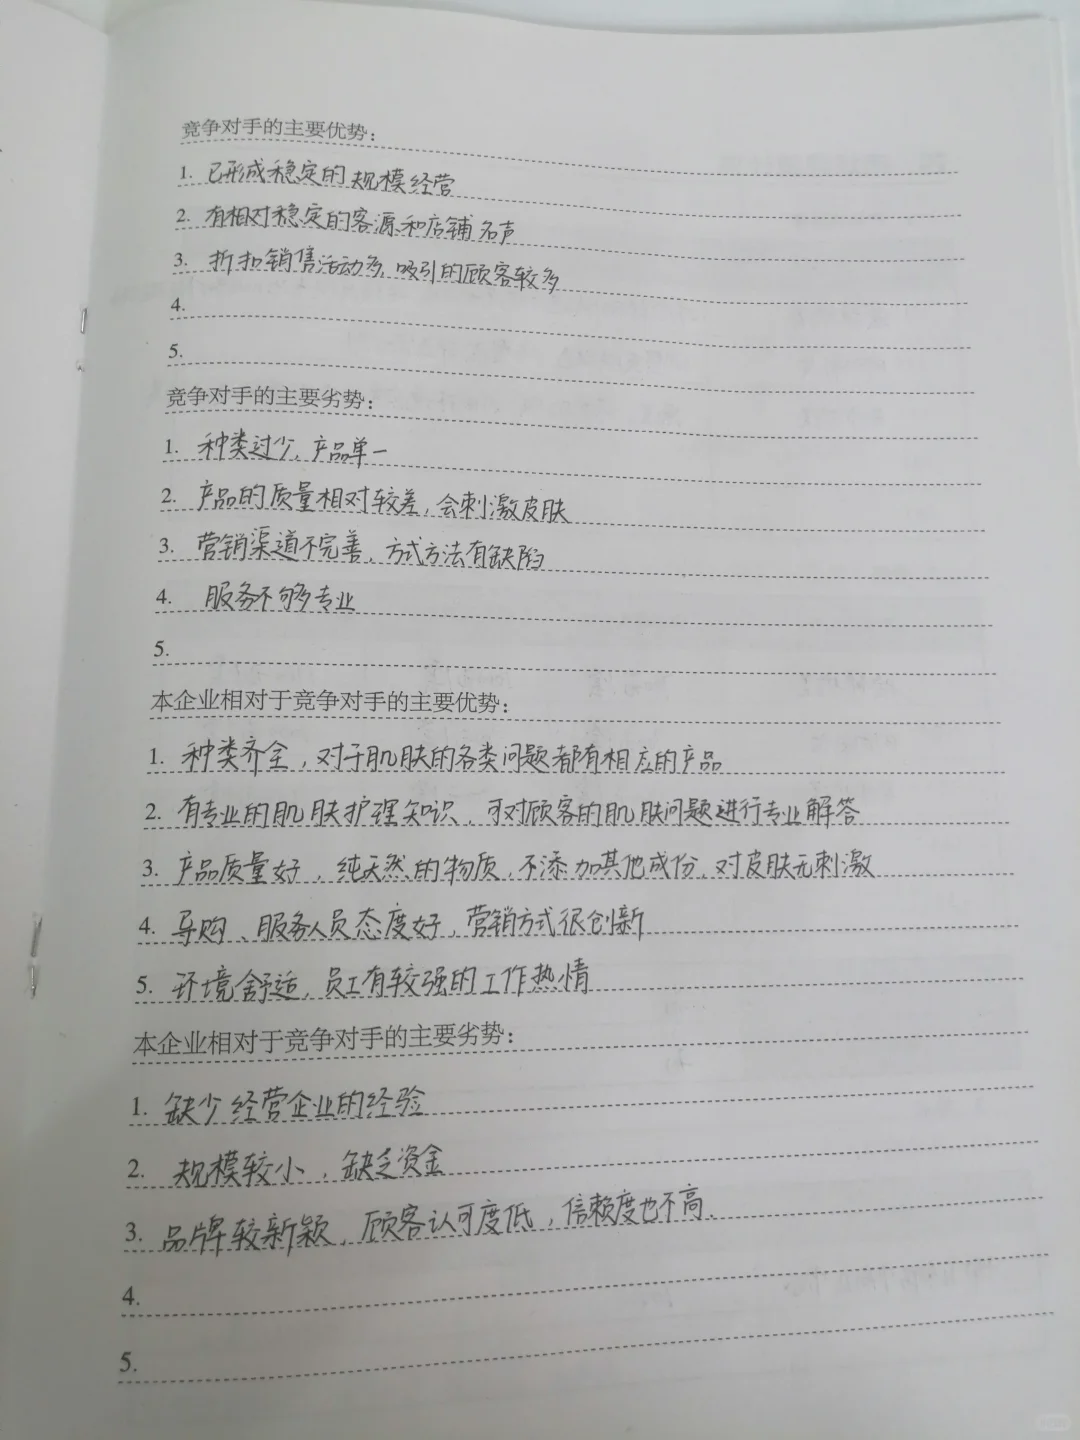 竞争对手的主要优势：
1. 已形成稳定的规模经营
2. 有相对稳定的客源和店铺名声
3. 折扣销售活动多，吸引的顾客较多
4.
5.
竞争对手的主要劣势：
1. 种类过少，产品单一
2. 产品的质量相对较差，会刺激皮肤
3. 营销渠道不完善，方式方法有缺陷
4. 服务不够专业
5.
本企业相对于竞争对手的主要优势：
1. 种类齐全，对于肌肤的各类问题都有相应的产品
2. 有专业的肌肤护理知识，可对顾客的肌肤问题进行专业解答
3. 产品质量好，纯天然的物质，不添加其他成份，对皮肤无刺激
4. 导购、服务人员态度好，营销方式很创新
5. 环境舒适，员工有较强的工作热情
本企业相对于竞争对手的主要劣势：
1. 缺少经营企业的经验
2. 规模较小，缺乏资金
3. 品牌较新颖，顾客认可度低，信赖度也不高.
4.
5.